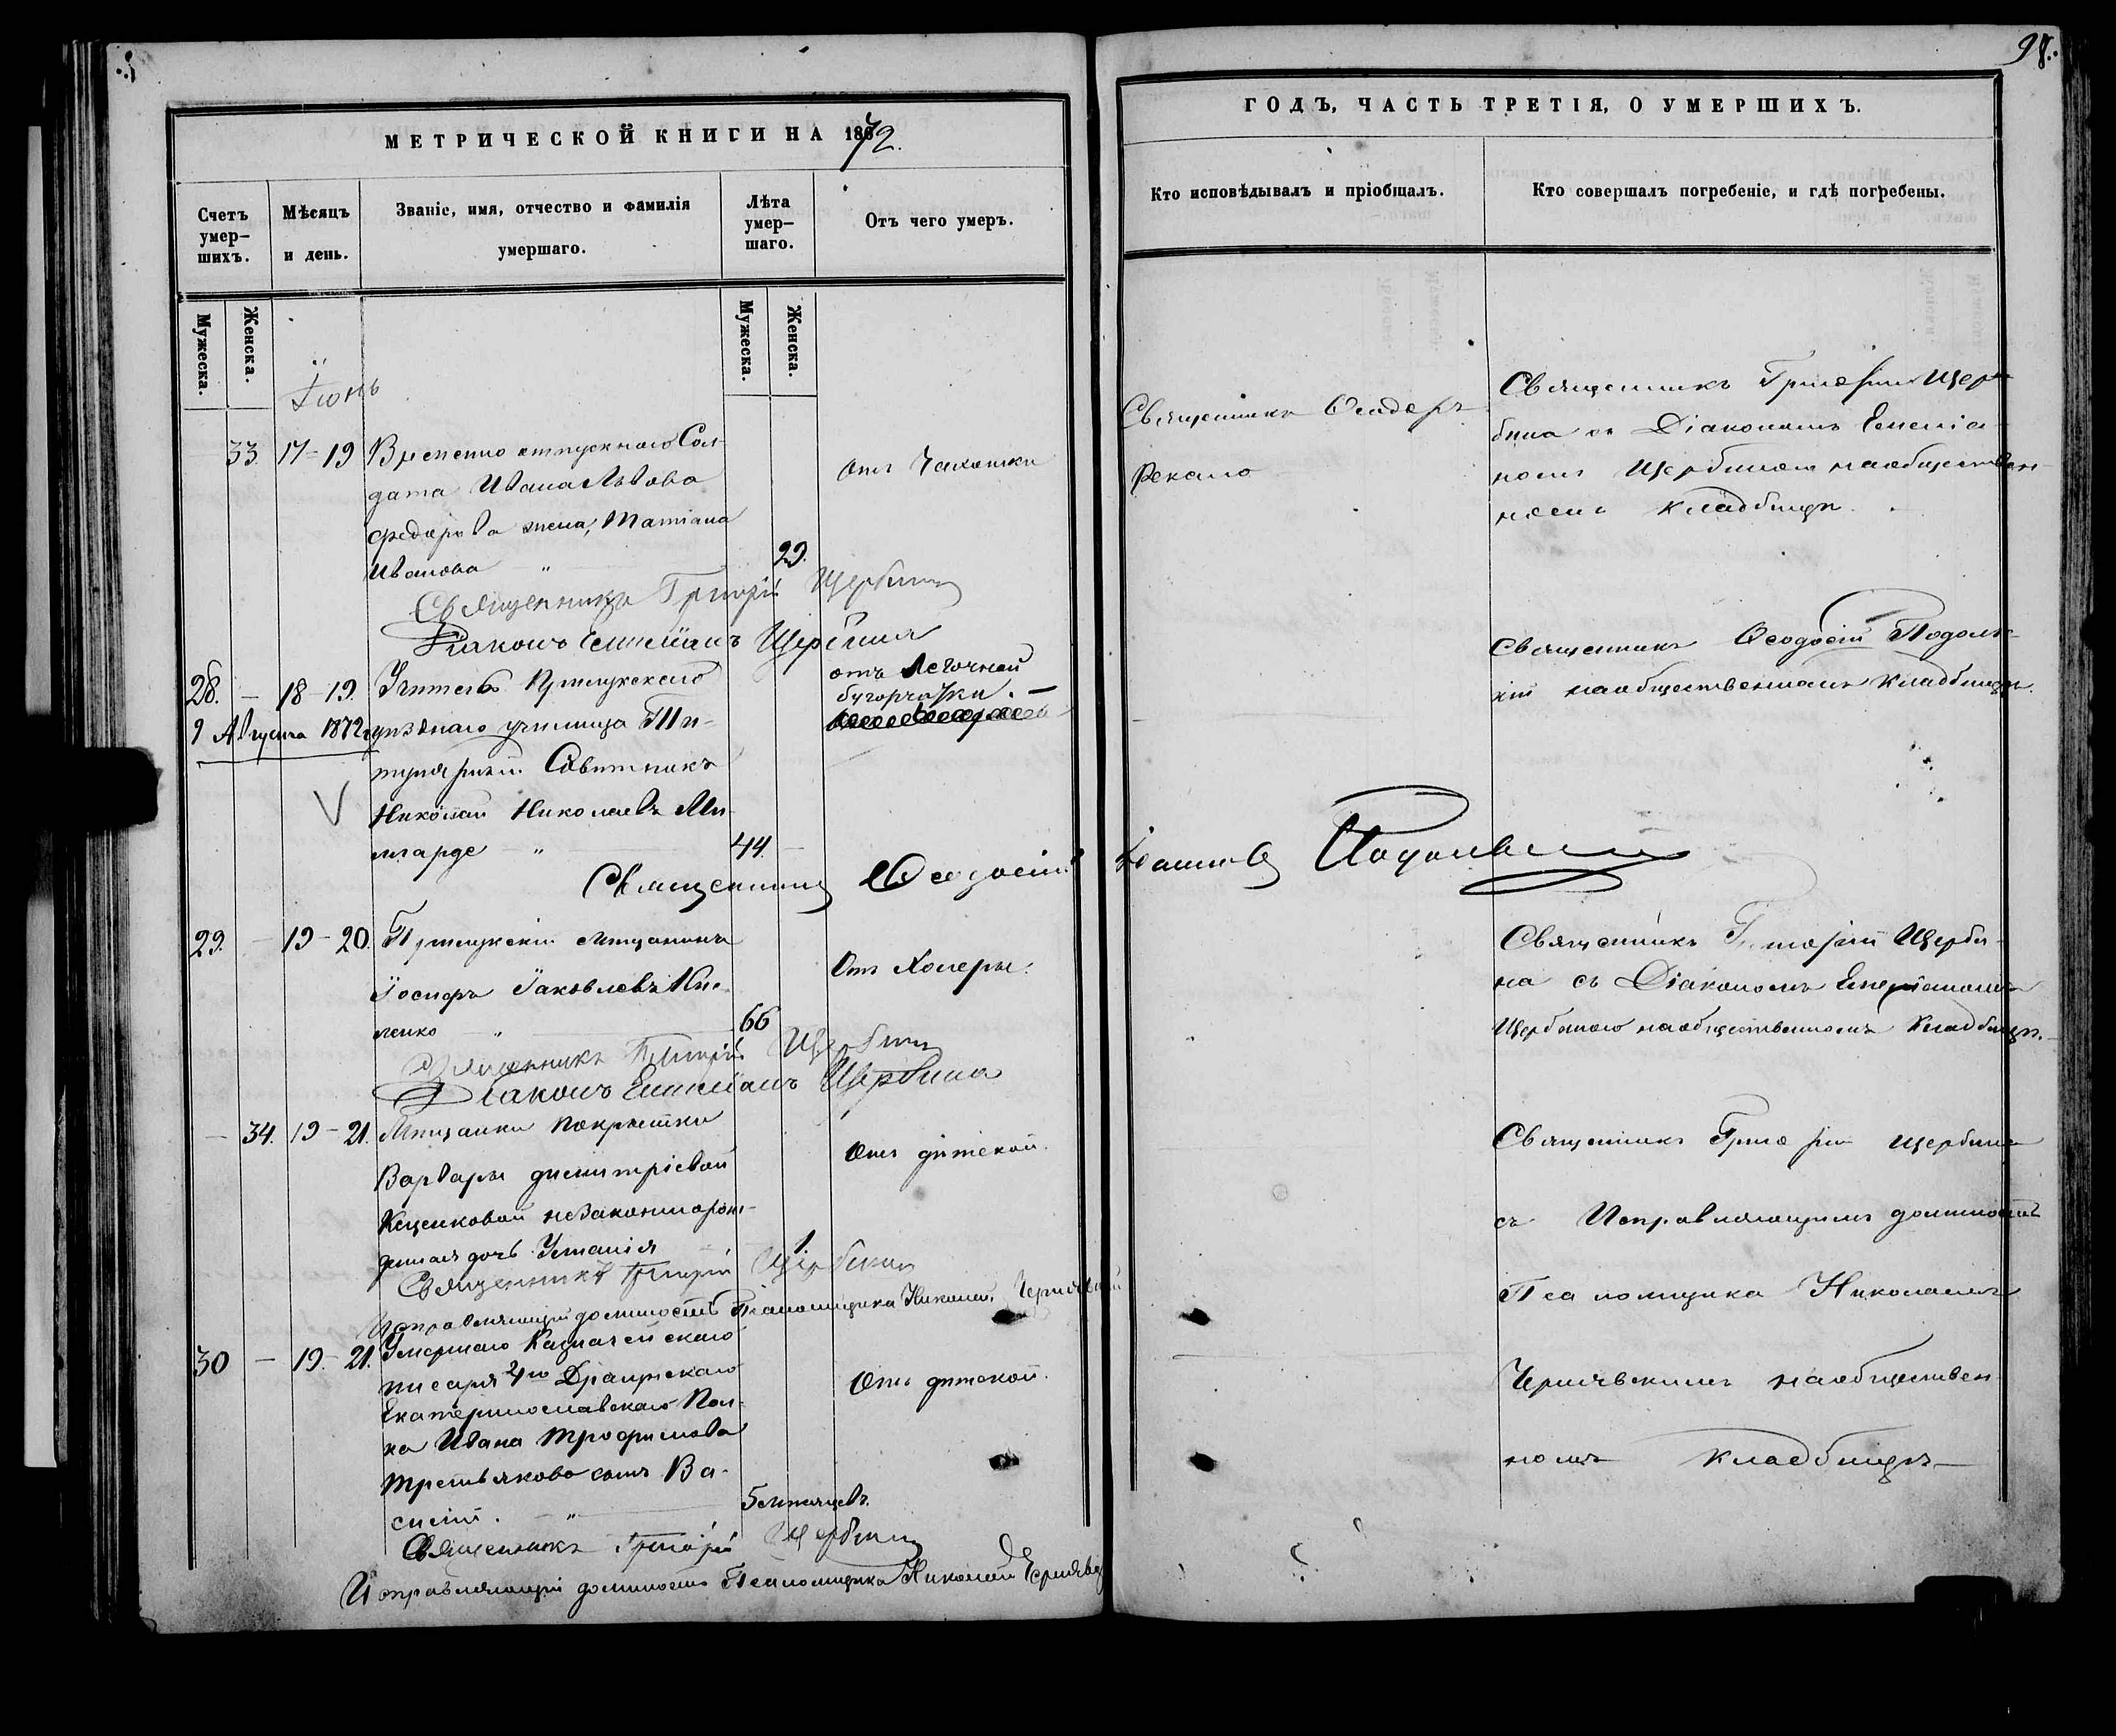 98.
МЕТРИЧЕСКОЙ КНИГИ НА 1872.
ГОДЪ, ЧАСТЬ ТРЕТІЯ, О УМЕРШИХЪ.
Счетъ умер-
шихъ.
Мѣсяцъ
и день.
Званіе, имя, отчество и фамилія
умершаго.
Лѣта
умер-
шаго.
Отъ чего умеръ.
Кто исповѣдывалъ и пріобщалъ.
Кто совершалъ погребеніе, и гдѣ погребены.
Мужеска.
Женска.
Мужеска.
Женска.
Іюнь
33. 17-19 Временно отпускного Сол-
дата Ивана Львова
Федорова жена, Татіана
Иванова "
29.
отъ Чахотки
Священникъ
Священникъ Григорій Щер-
бина съ Діакономъ Емеліа-
номъ Щербиною на обществен-
номъ кладбищѣ.
Священникъ Григорій Щербина
Діаконъ Емеліанъ Щербина
28. - 18-19. Учитель Прилукскаго
9 Августа 1872 уѣзднаго училища Ти-
тулярный Совѣтникъ
Николай Николаевъ Ми-
ларде "
44.
отъ Легочной
бугорчатки. -
Священникъ Ѳеодосій Подоль-
кій на общественномъ кладбищѣ.
Священникъ Ѳеодосій
29. - 19-20. Прилукскій мѣщанинъ
Іосифъ Іаковлевъ
ленко "
66
Отъ Холеры.
Священникъ Григорій Щерби-
на съ Діакономъ Емеліаномъ
Щербиною на общественномъ Кладбищѣ.
Священникъ Григорій Щербина
Діаконъ Емеліанъ Щербина
- 34. 19-21. Мѣщанки покрытки
Варвары Димитріевой
незаконнорож-
денная дочь
1
Отъ дѣтской.
Священникъ Григорій Щербина
съ Исправляющимъ должность
Псаломщика Николаемъ
Чернявскимъ на обществен-
номъ Кладбищѣ
Священникъ Григорій Щербина
Исправляющій должность Псаломщика Николай Чернявскій
30 - 19-21. Умершаго Казначейскаго
писаря 4го Драгунскаго
Екатеринославскаго Пол-
ка Ивана Трофимова
Третьякова сынъ Ва-
силій. "
5 мѣсяцевъ.
Отъ дѣтской.
Священникъ Григорій Щербина
Исправляющій должность Псаломщика Николай Чернявскій